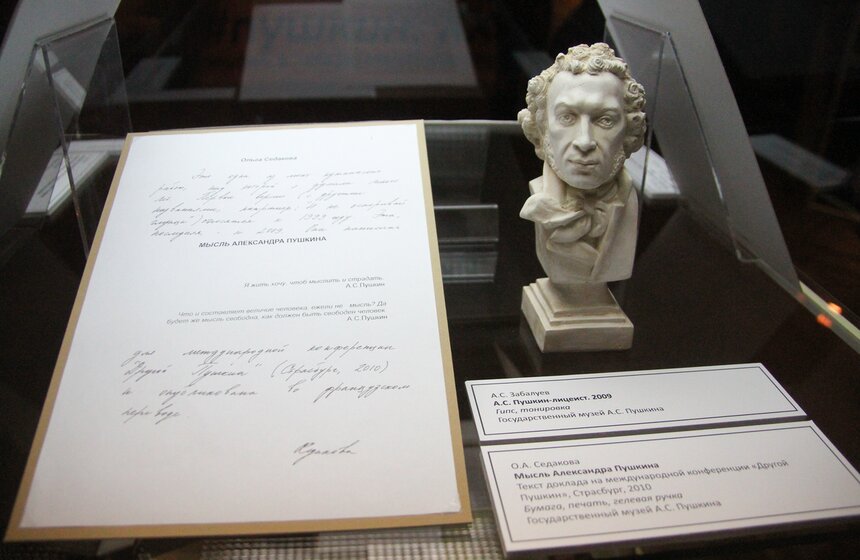 Пушкин.
Ольга Седакова
Это одна из моих
работ под
Первая версия
называлась
в 1999 году. Эта,
последняя - в 2009 была написана
МЫСЛЬ АЛЕКСАНДРА ПУШКИНА
Я жить хочу, чтоб мыслить и страдать.
А.С.Пушкин
Что и составляет величие человека, ежели не мысль? Да
будет же мысль свободна, как должен быть свободен человек
А.С.Пушкин
для международной конференции
"Другой Пушкин" (Страсбург, 2010)
и опубликована во французском
переводе.
Седакова
А.С. Забалуев
А.С. Пушкин-лицеист. 2009
Гипс, тонировка
Государственный музей А.С. Пушкина
О.А. Седакова
Мысль Александра Пушкина
Текст доклада на международной конференции «Другой
Пушкин», Страсбург, 2010
Бумага, печать, гелевая ручка
Государственный музей А.С. Пушкина